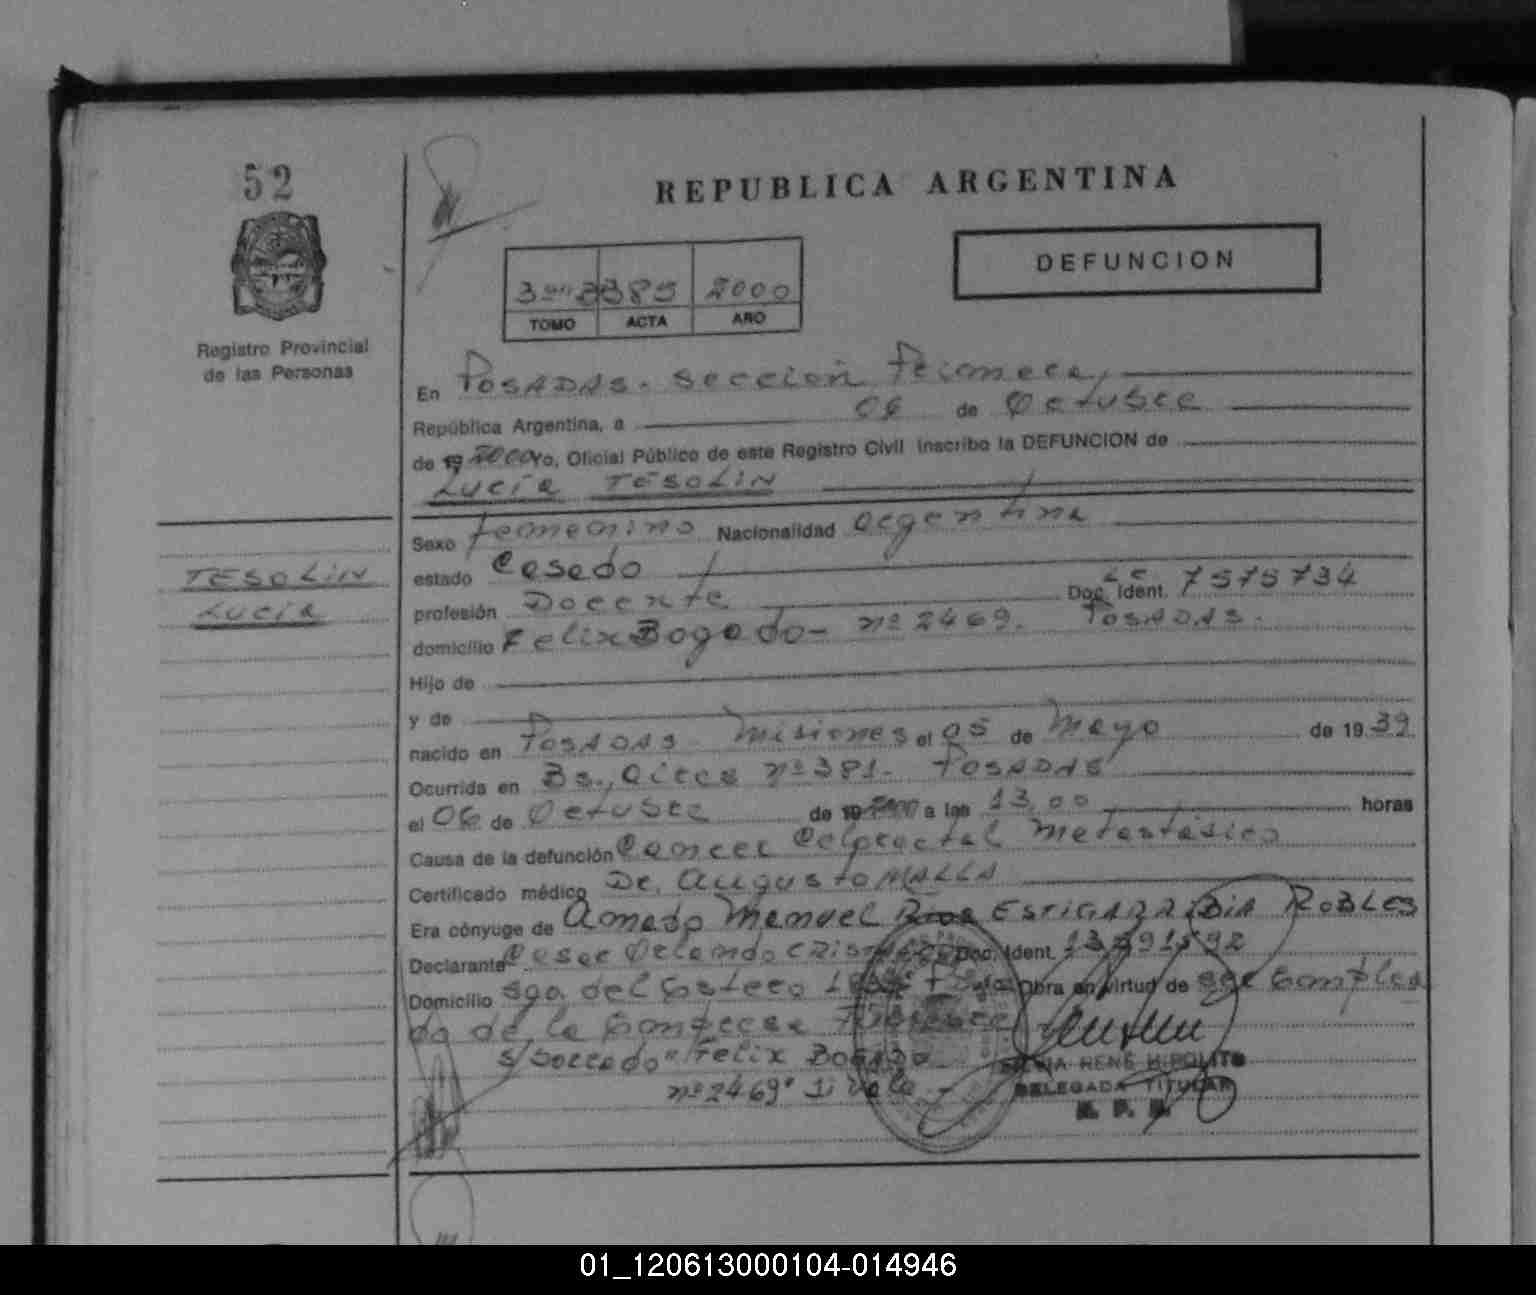 52
REPUBLICA ARGENTINA
DEFUNCION
385 2000
TOMO ACTA AÑO
Registro Provincial
de las Personas
En POSADAS. Sección Primera,
República Argentina, a 06 de Octubre
de 19 2000 Yo, Oficial Público de este Registro Civil inscribo la DEFUNCION de
Lucía TESOLIN
Sexo femenino Nacionalidad argentina
estado Casado
profesión Docente Doc. Ident. LC 7575734
domicilio Felix Bogado- nº 2469. POSADAS.
Hijo de
y de
nacido en POSADAS Misiones el 05 de Mayo de 1939
Ocurrida en Bs. Aires nº 381. POSADAS
el 06 de Octubre de 19 2000 a las 13,00 horas
Causa de la defunción Cancer Colorectal Metastásico
Certificado médico Dr. Augusto MALLA
Era cónyuge de Amado Manuel ESTIGARRIBIA ROBLES
Declarante Cesar Orlando Doc. Ident.
Domicilio Sgo. del Estero Obra en virtud de ser Emplea
do de la
S/Borrado "Felix Bogado
nº 2469" Si Vale.-
RENE HIPOLITO
DELEGADA TITULAR
R. P. P.
TESOLIN
Lucía
01_120613000104-014946